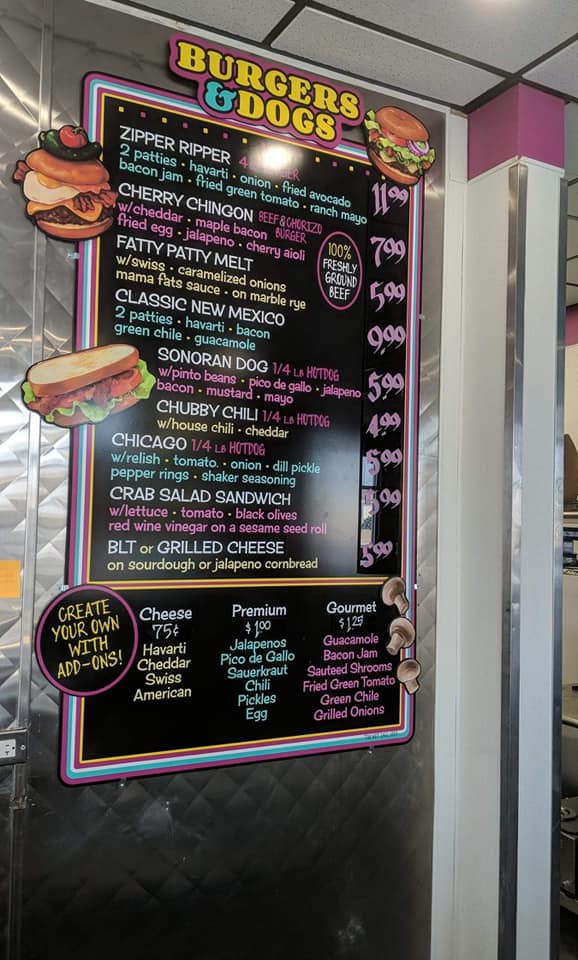 BURGERS
& DOGS
ZIPPER RIPPER
2 patties • havarti • onion • fried avocado
bacon jam • fried green tomato • ranch mayo
11.99
CHERRY CHINGON BEEF & CHORIZO BURGER
w/cheddar • maple bacon
fried egg • jalapeno • cherry aioli
7.99
100%
FRESHLY
GROUND
BEEF
FATTY PATTY MELT
w/swiss • caramelized onions
mama fats sauce • on marble rye
5.99
CLASSIC NEW MEXICO
2 patties • havarti • bacon
green chile • guacamole
9.99
SONORAN DOG 1/4 LB HOTDOG
w/pinto beans • pico de gallo • jalapeno
bacon • mustard • mayo
5.99
CHUBBY CHILI 1/4 LB HOTDOG
w/house chili • cheddar
4.99
CHICAGO 1/4 LB HOTDOG
w/relish • tomato • onion • dill pickle
pepper rings • shaker seasoning
5.99
CRAB SALAD SANDWICH
w/lettuce • tomato • black olives
red wine vinegar on a sesame seed roll
BLT or GRILLED CHEESE
on sourdough or jalapeno cornbread
5.99
CREATE
YOUR OWN
WITH
ADD-ONS!
Cheese
75¢
Havarti
Cheddar
Swiss
American
Premium
$1.00
Jalapenos
Pico de Gallo
Sauerkraut
Chili
Pickles
Egg
Gourmet
$1.25
Guacamole
Bacon Jam
Sauteed Shrooms
Fried Green Tomato
Green Chile
Grilled Onions